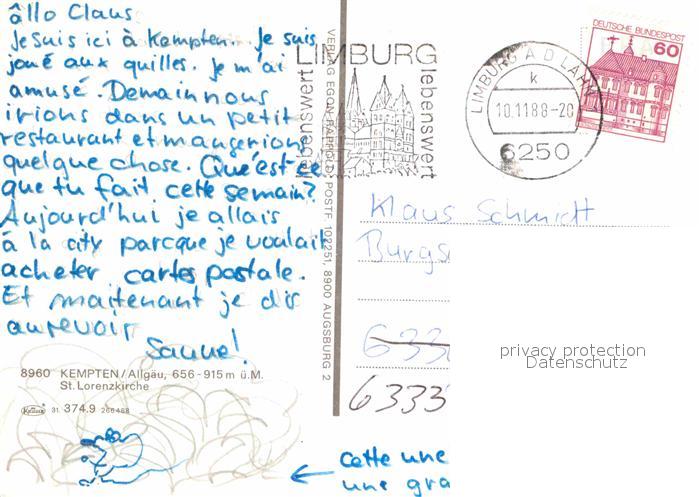 âllo Claus
Je suis ici à Kempten. Je suis
joué aux quilles. Je m'ai
amusé. Demain nous
irions dans un petit
restaurant et mangerions
quelque chose. Que est-ce
que tu fait cette semain?
Aujourd'hui je allais
à la city parcque je voulait
acheter cartes postale.
Et maitenant je dis
au revoir
Sanne!
8960 KEMPTEN/Allgäu, 656-915 m ü.M.
St. Lorenzkirche
31. 374.9 266468
cette une
une gra
VERLAG EGON RAPPOLD, POSTF. 102251, 8900 AUGSBURG 2
LIMBURG
lebenswert
lebenswert
LIMBURG A D LAHN
k
10.11.88-20
6250
DEUTSCHE BUNDESPOST
60
Klaus Schmidt
Burgs
633
6333
privacy protection
Datenschutz